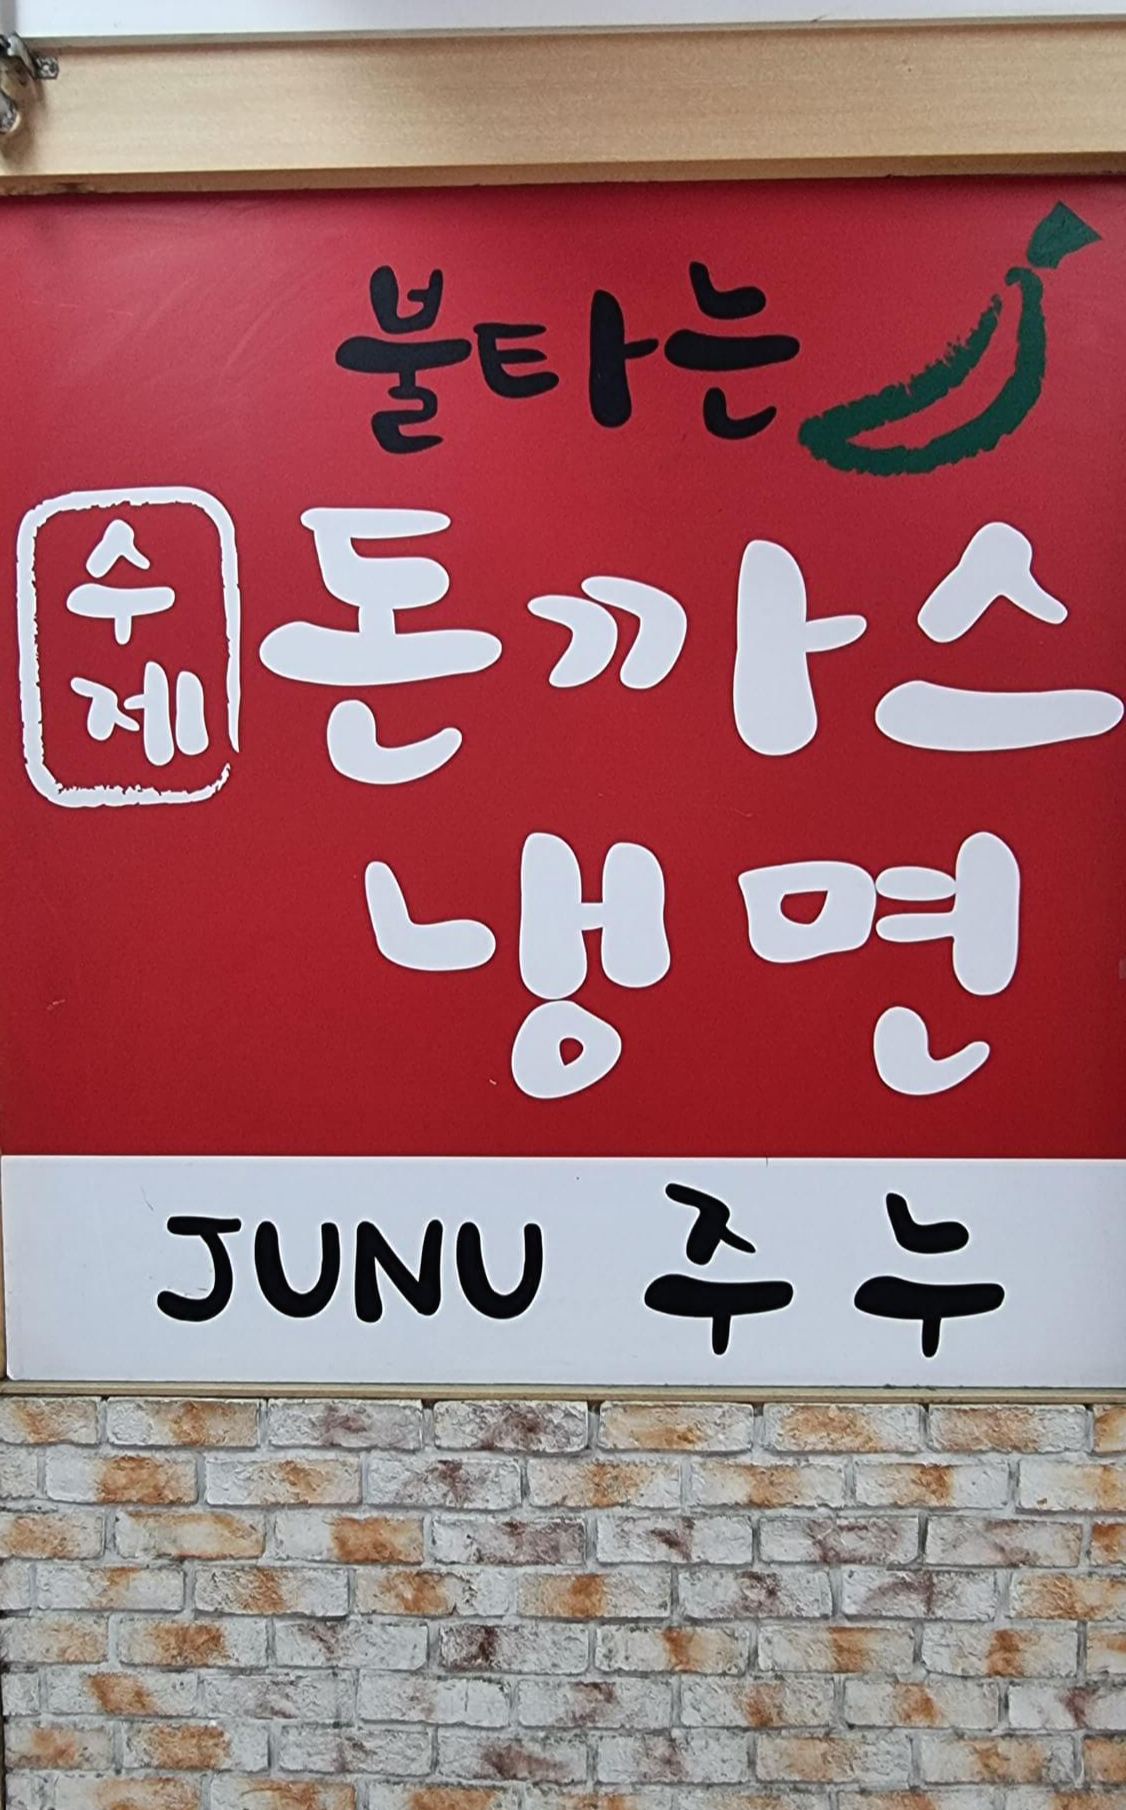 불타는
수제 돈까스
냉면
JUNU 주누